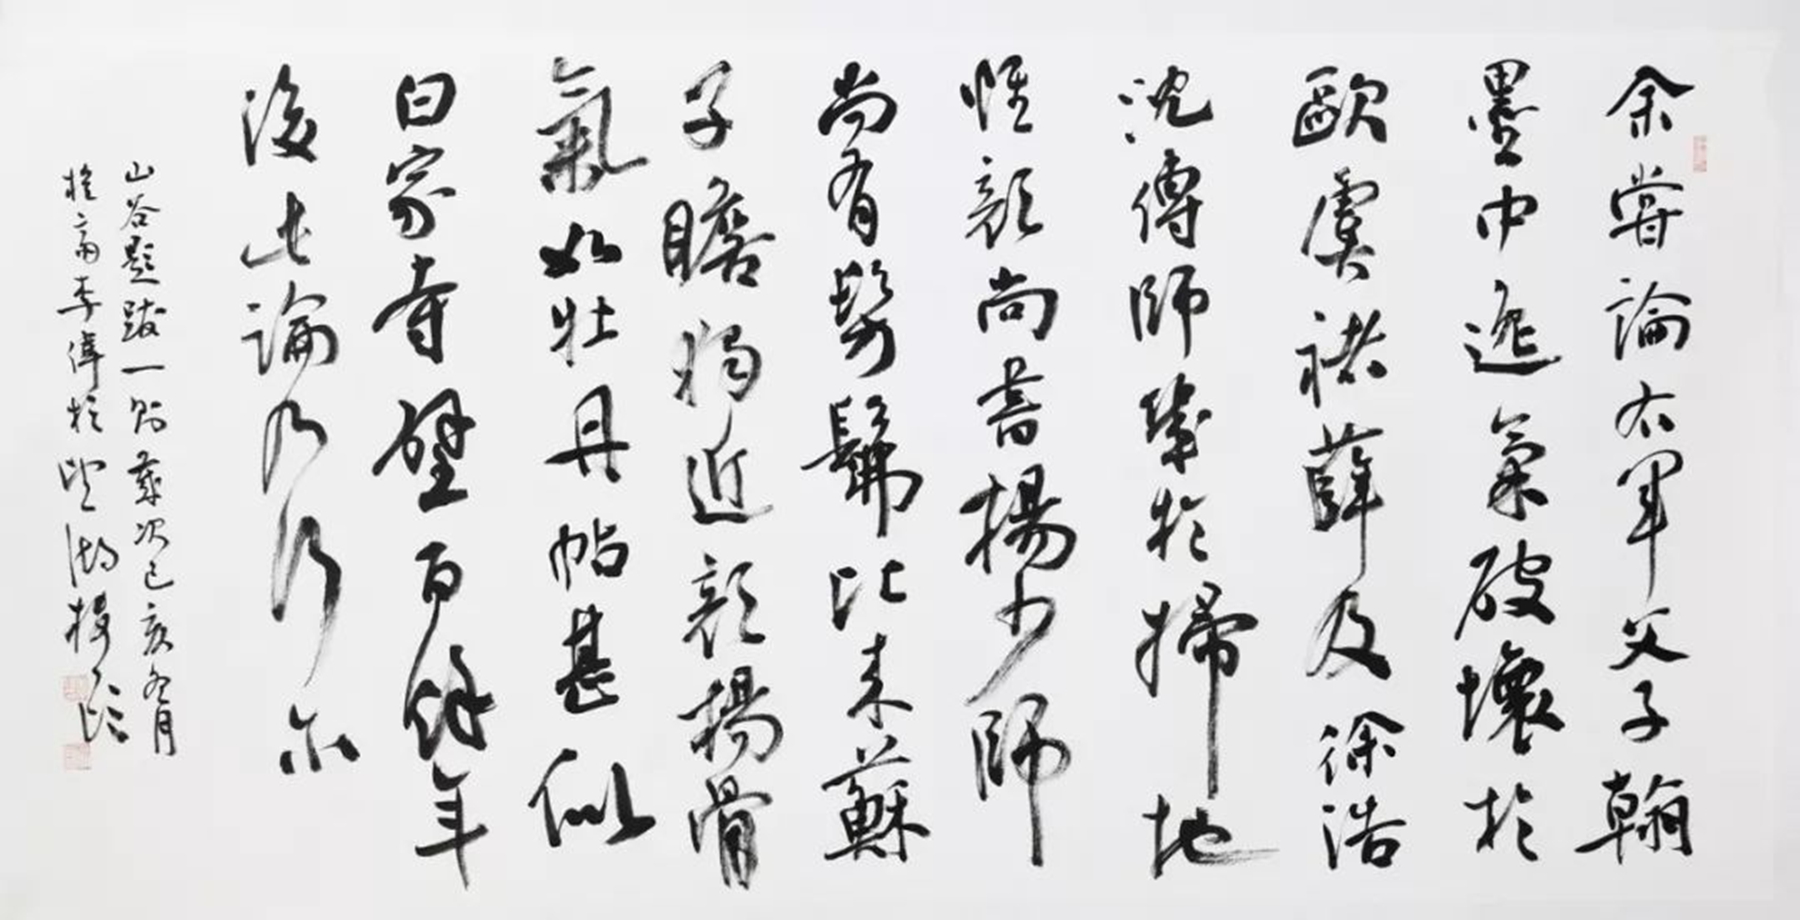 余嘗論右軍父子翰
墨中逸氣破壞於
歐虞褚薛及徐浩
沈傳師幾於掃地
惟顏尚書楊少師
尚有髣髴比来蘇
子瞻獨近顏楊骨
氣如牡丹帖甚似
白家寺壁百餘年
後此論乃行尔
山谷題跋一則歲次己亥冬月
李偉於湖